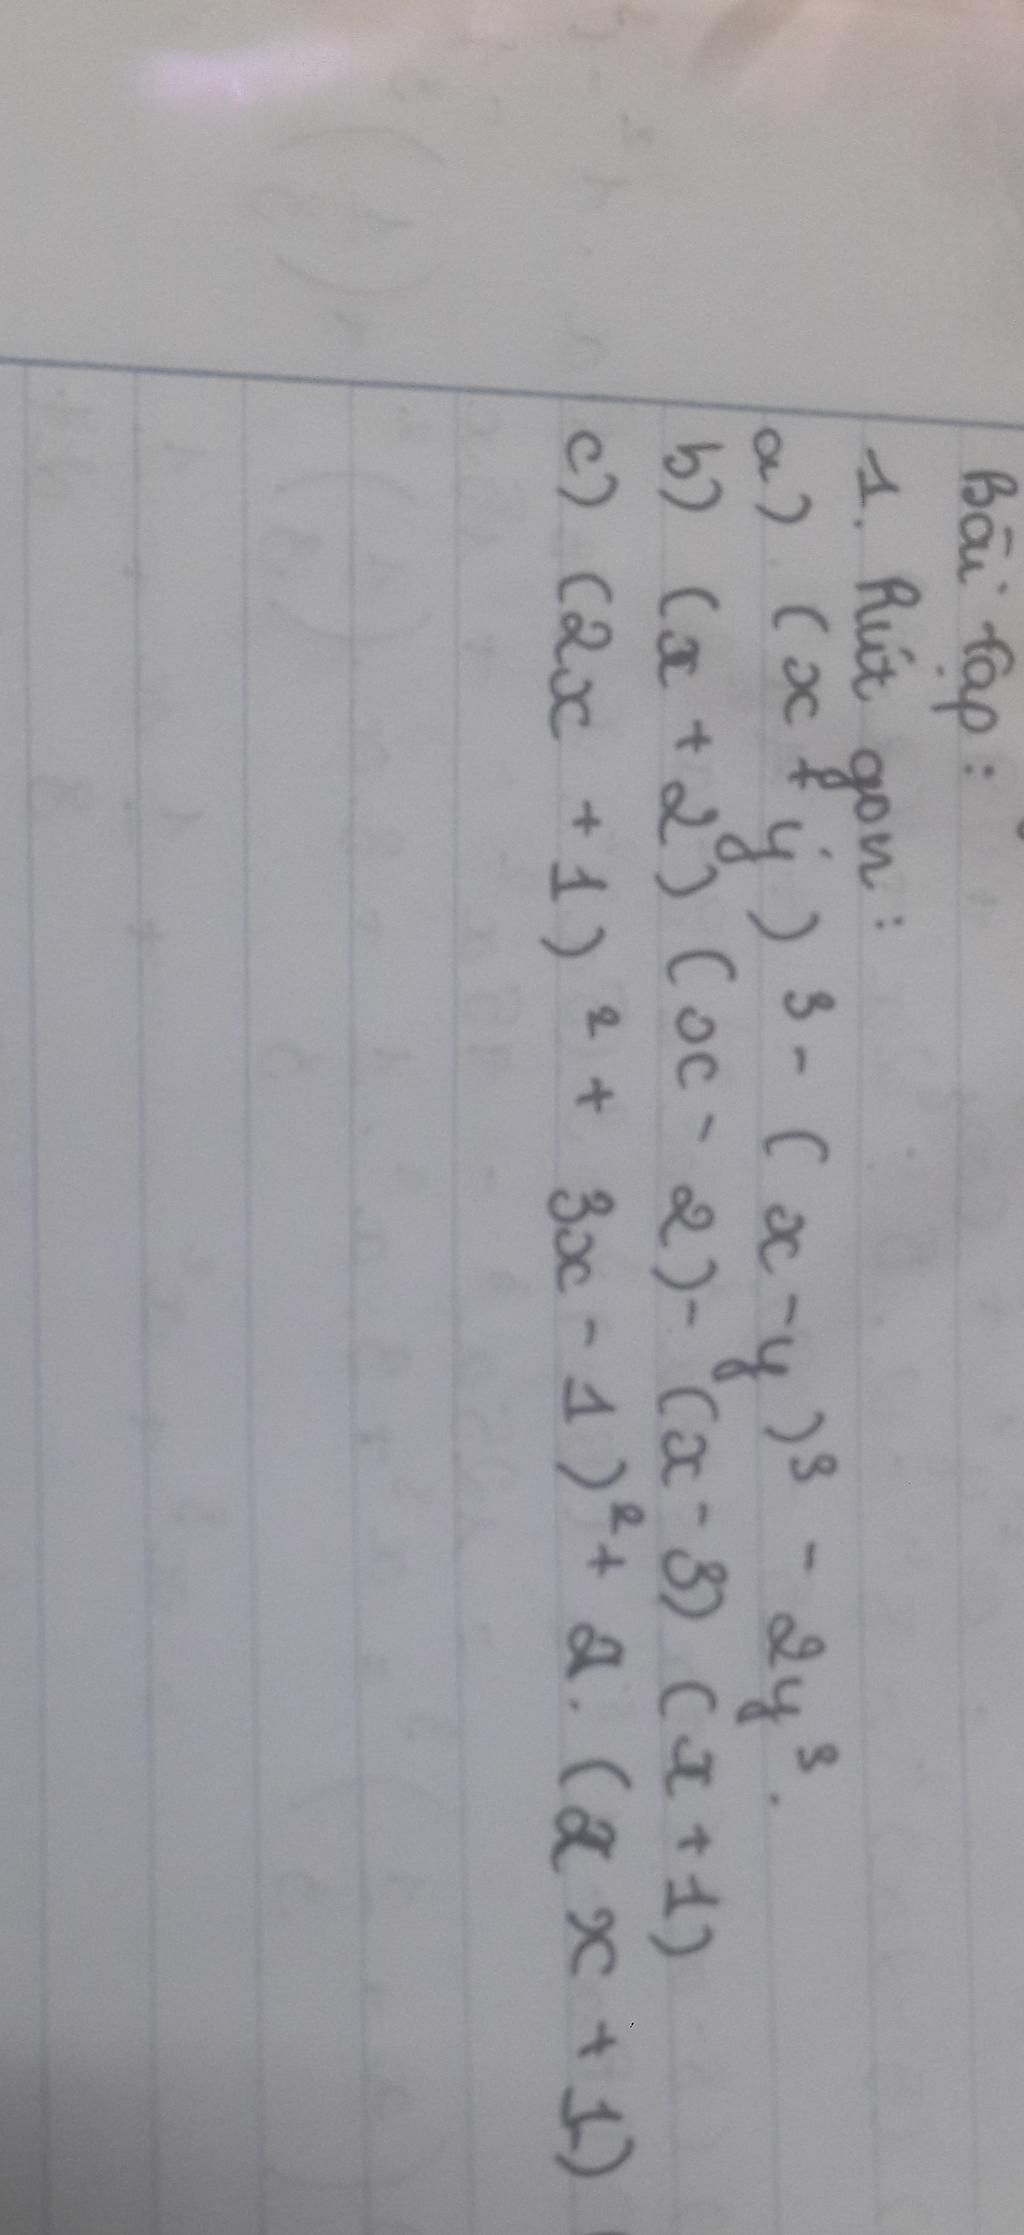 Bài tập:
1. Rút gọn:
a) (x + y)³ - (x - y)³ - 2y³.
b) (x + 2) (x - 2) - (x - 3) (x + 1)
c) (2x + 1)² + 3x - 1)² + 2. (2x + 1)